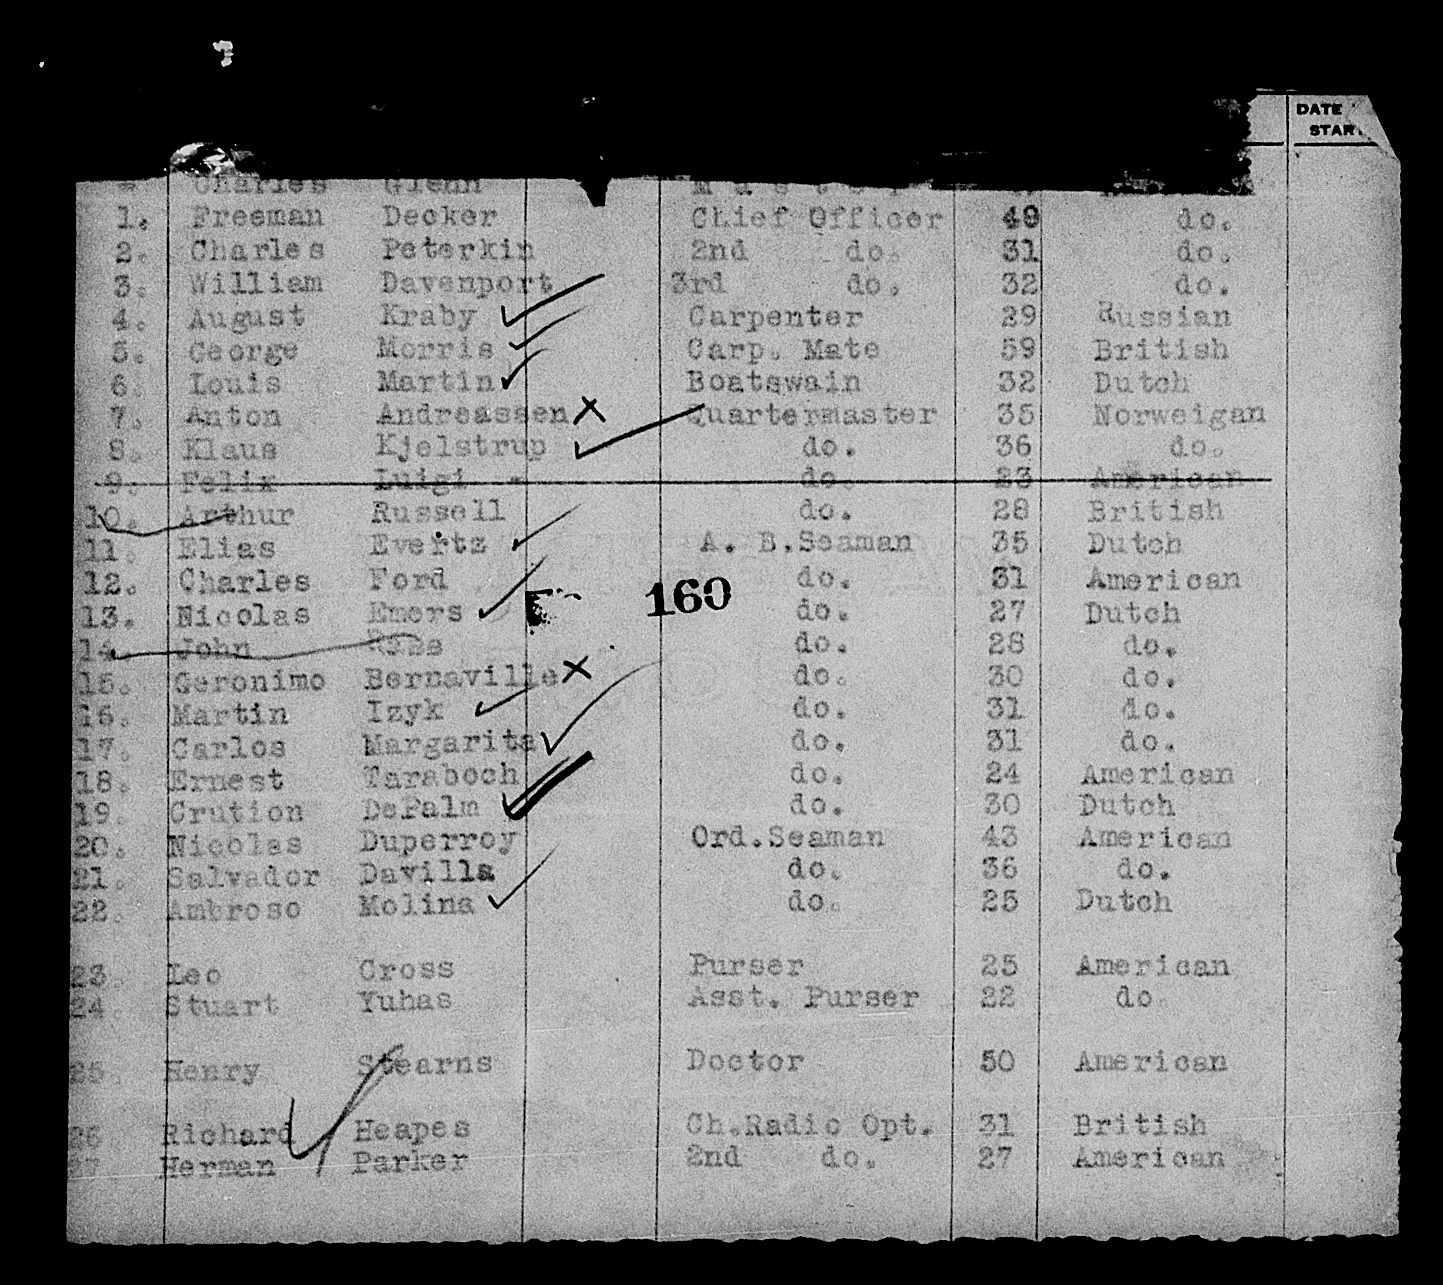 DATE
STAR
Charles Glenn Master
1. Freeman Decker Chief Officer 49 do.
2. Charles Peterkin 2nd do. 31 do.
3. William Davenport 3rd do. 32 do.
4. August Kraby Carpenter 29 Russian
5. George Morris Carp. Mate 59 British
6. Louis Martin Boatswain 32 Dutch
7. Anton Andreassen X Quartermaster 35 Norweigan
8. Klaus Kjelstrup do. 36 do.
9. Felix Luigi - do. 23 American
10. Arthur Russell do. 28 British
11. Elias Evertz A. B.Seaman 35 Dutch
12. Charles Ford do. 31 American
160
13. Nicolas Emers do. 27 Dutch
14. John do. 28 do.
15. Geronimo Bernaville X do. 30 do.
16. Martin Izyk do. 31 do.
17. Carlos Margarita do. 31 do.
18. Ernest Taraboch do. 24 American
19. Crution DePalm do. 30 Dutch
20. Nicolas Duperroy Ord.Seaman 43 American
21. Salvador Davilla do. 36 do.
22. Ambroso Molina do. 25 Dutch
23. Leo Cross Purser 25 American
24. Stuart Yuhas Asst. Purser 22 do
25. Henry Stearns Doctor 50 American
26 Richard Heapes Ch.Radio Opt. 31 British
27 Herman Parker 2nd do. 27 American